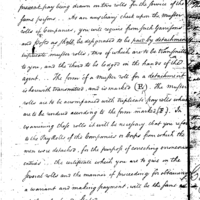 present, pay being drawn on these rolls for the service of the
same person. As an auxiliary check upon the muster
rolls of Companies, you will require from each Garrison
and Corps as shall be disposed to be paid by detachment
muster rolls, two of which are to be transferred
to you, and the third to be lodged in the hands of the
agent. The form of a muster roll for a detachment
is herewith transmitted, and is marked (B). The muster
rolls are to be accompanied with triplicate pay rolls which
are to be worded according to the form marked (E). In
examining these rolls it will be necessary that you refer
to the Pay Rolls of the Companies or Corps from which the
men was detached, for the purpose of correcting erroneous
entries. The certificate which you are to give on the
several rolls and the manner of proceeding for obtaining
a warrant and making payment, will be the same as